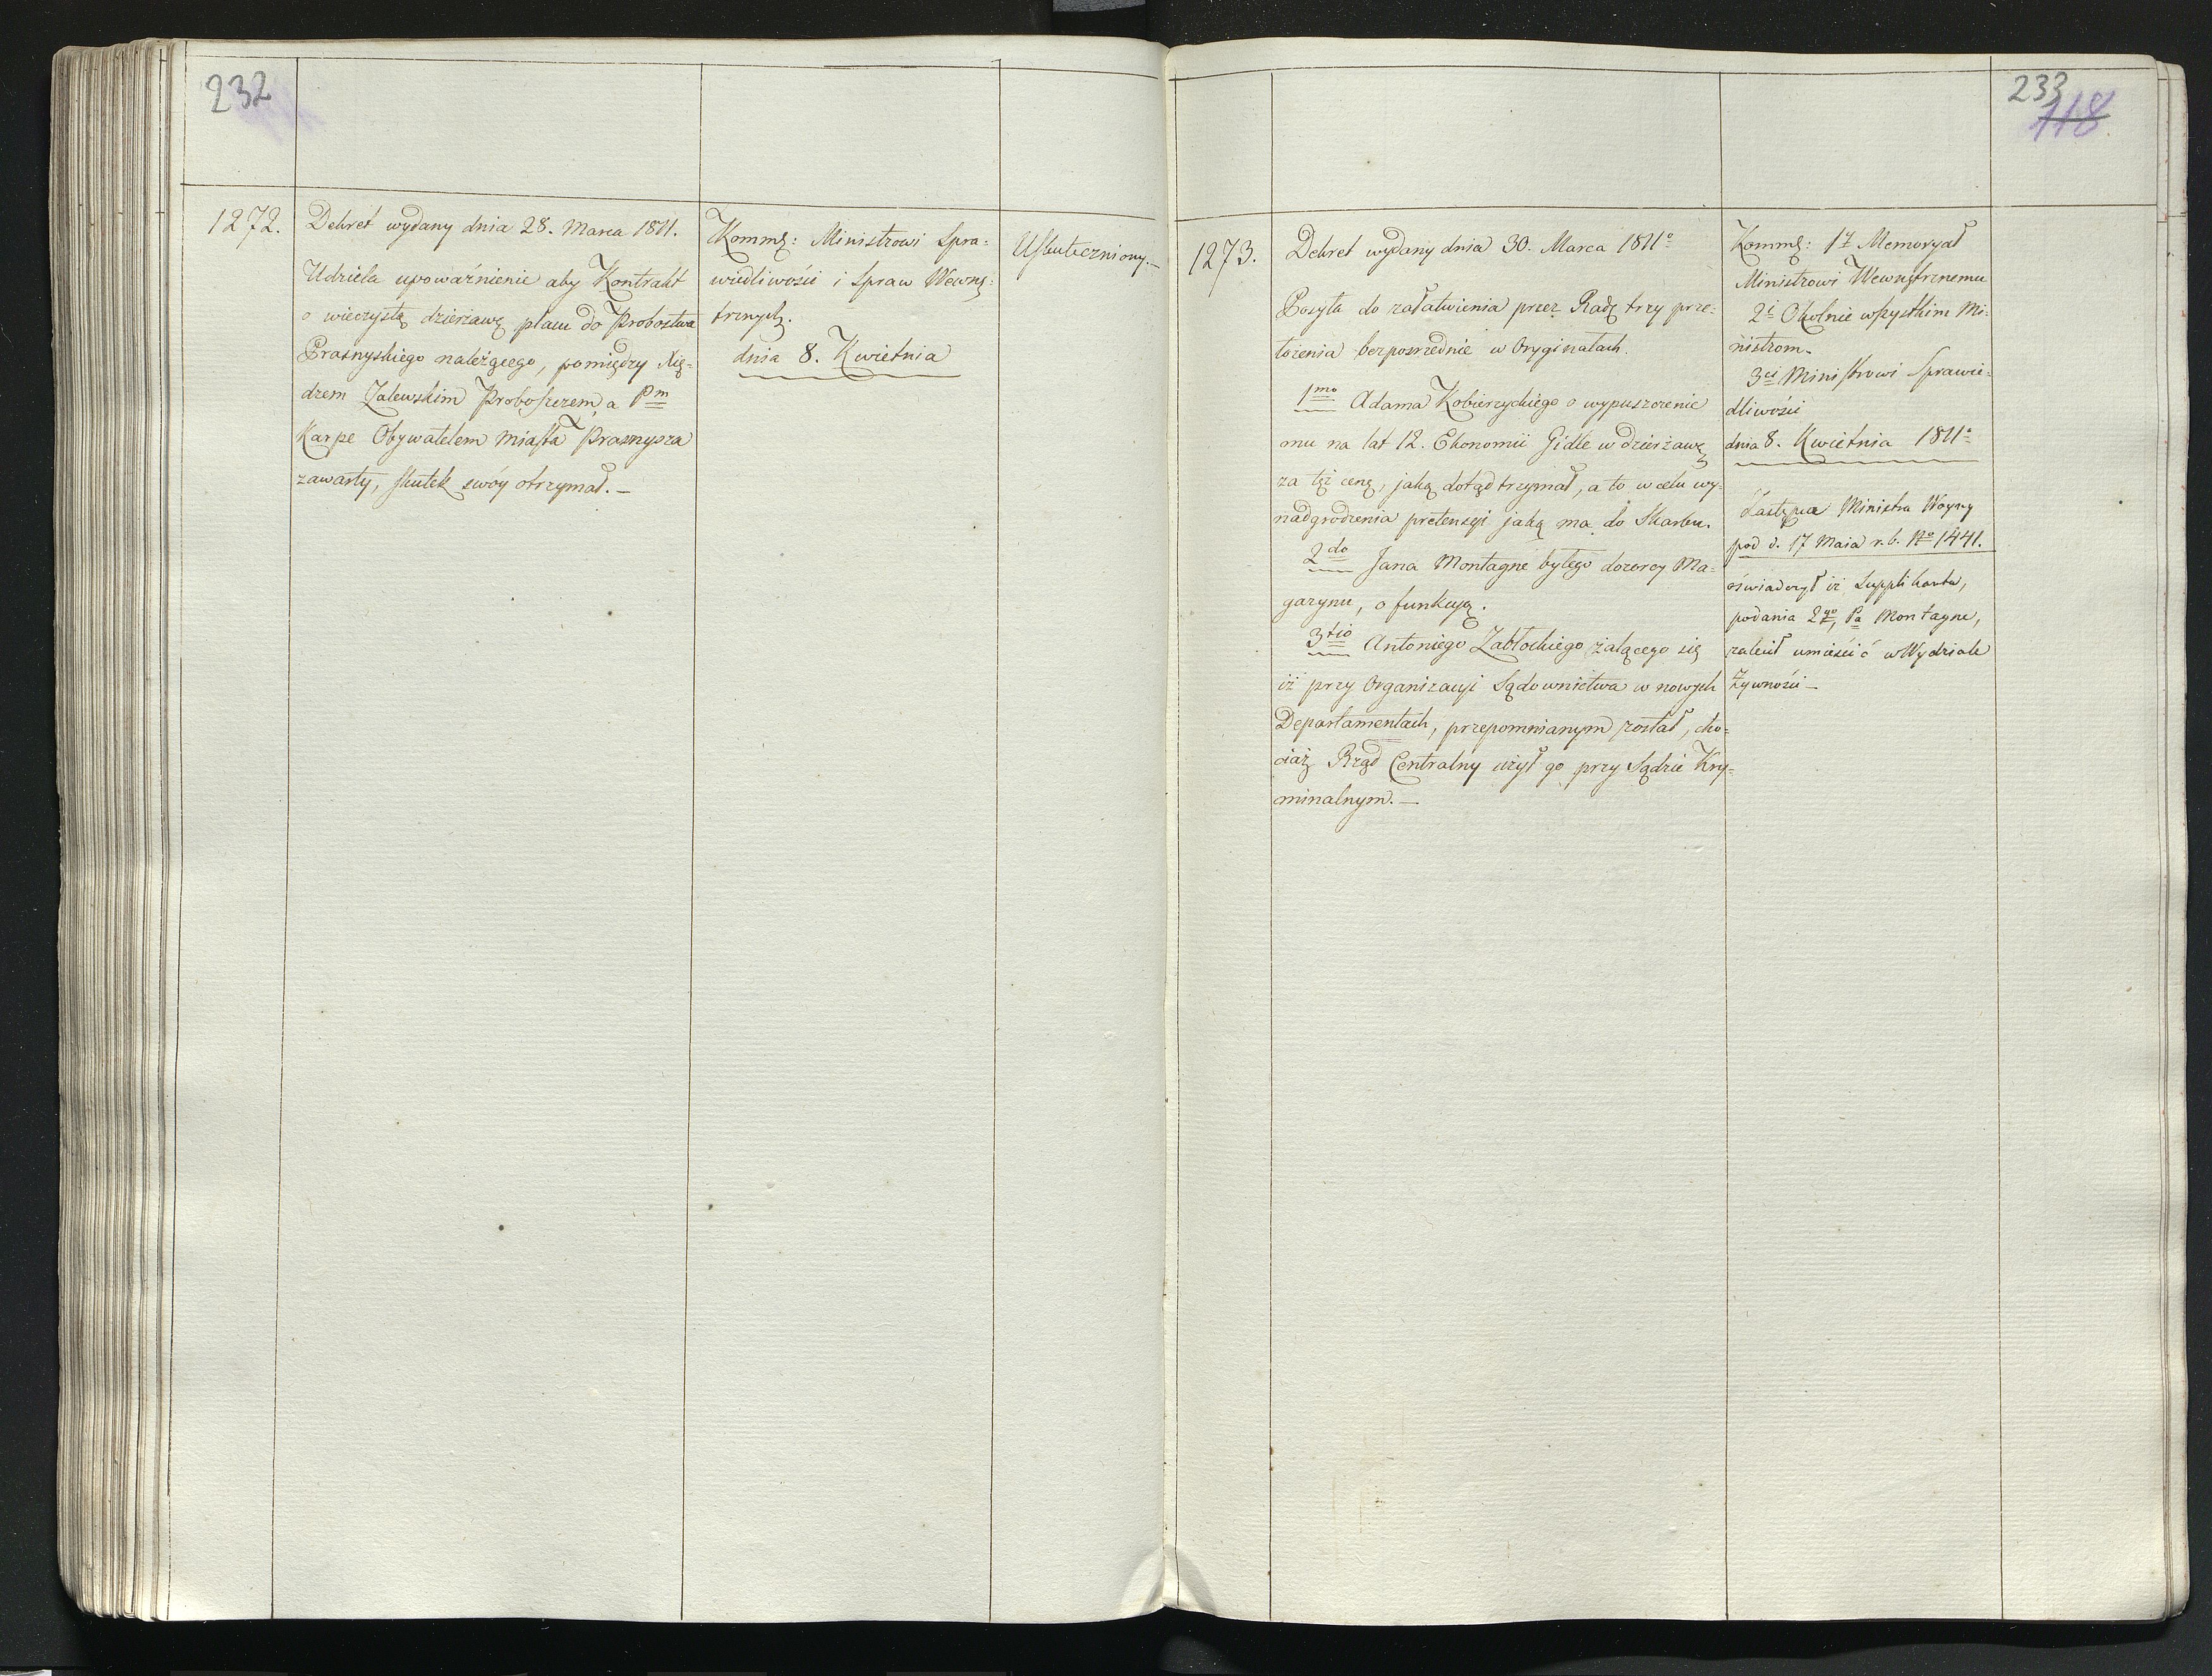 232
1272.
Dekret wydany dnia 28. Marca 1811.
Udziela upoważnienie aby Kontrakt
o wieczystą dzierżawę placu do Probostwa
Prasnyskiego należącego, pomiędzy Xię-
dzem Zalewskim Proboszczem, a Pm
Karpe Obywatelem Miasta Prasnysza
zawarty, skutek swóy otrzymał. —
Kommę: Ministrowi Spra=
wiedliwości i Spraw Wewnę=
trznych.
dnia 8. Kwietnia
Uskuteczniony. —
233
118
1273.
Dekret wydany dnia 30. Marca 1811o
Posyła do załatwienia przez Radę trzy prze=
łożenia bezpośrzednie w Oryginałach.
1mo Adama Kobierzyckiego o wypuszczenie
mu na lat 12. Ekonomii Gidle w dzierżawę
za tęż cenę, jaką dotąd trzymał, a to w celu wy=
nadgrodzenia pretensyi jaką ma do Skarbu.
2do Jana Montagne byłego dozorcy Ma=
gazynu, o funkcyą.
3tio Antoniego Zabłockiego żalącego się
iż przy Organizacyi Sądownictwa w nowych
Departamentach, przepomnianym został, cho=
ciaż Rząd Centralny użył go przy Sądzie Kry=
minalnym. —
Kommę: 1y Memoryał
Ministrowi Wewnętrznemu
2i Okolnie wszystkim Mi=
nistrom.
3ci Ministrowi Sprawie=
dliwości
dnia 8. Kwietnia 1811o
Zastępca Ministra Woyny
pod d. 17 Maia r. b. No 1441.
oświadczył iż Supplikanta,
podania 2go, Pa Montagne,
zalecił umieścić w Wydziale
Żywności —